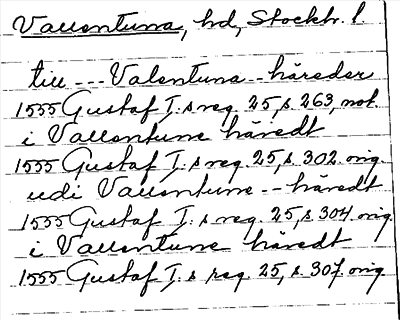 Vallentuna, hd, Stockh. l
till --- Valentuna -- häreder
1555 Gustaf I:s reg. 25, s. 263, not.
i Vallentune häredt
1555 Gustaf I:s reg. 25, s. 302. orig.
udi Vallentune -- häredt
1555 Gustaf I:s reg. 25, s. 304. orig
i Vallentune häredt
1555 Gustaf I:s reg. 25, s. 307. orig